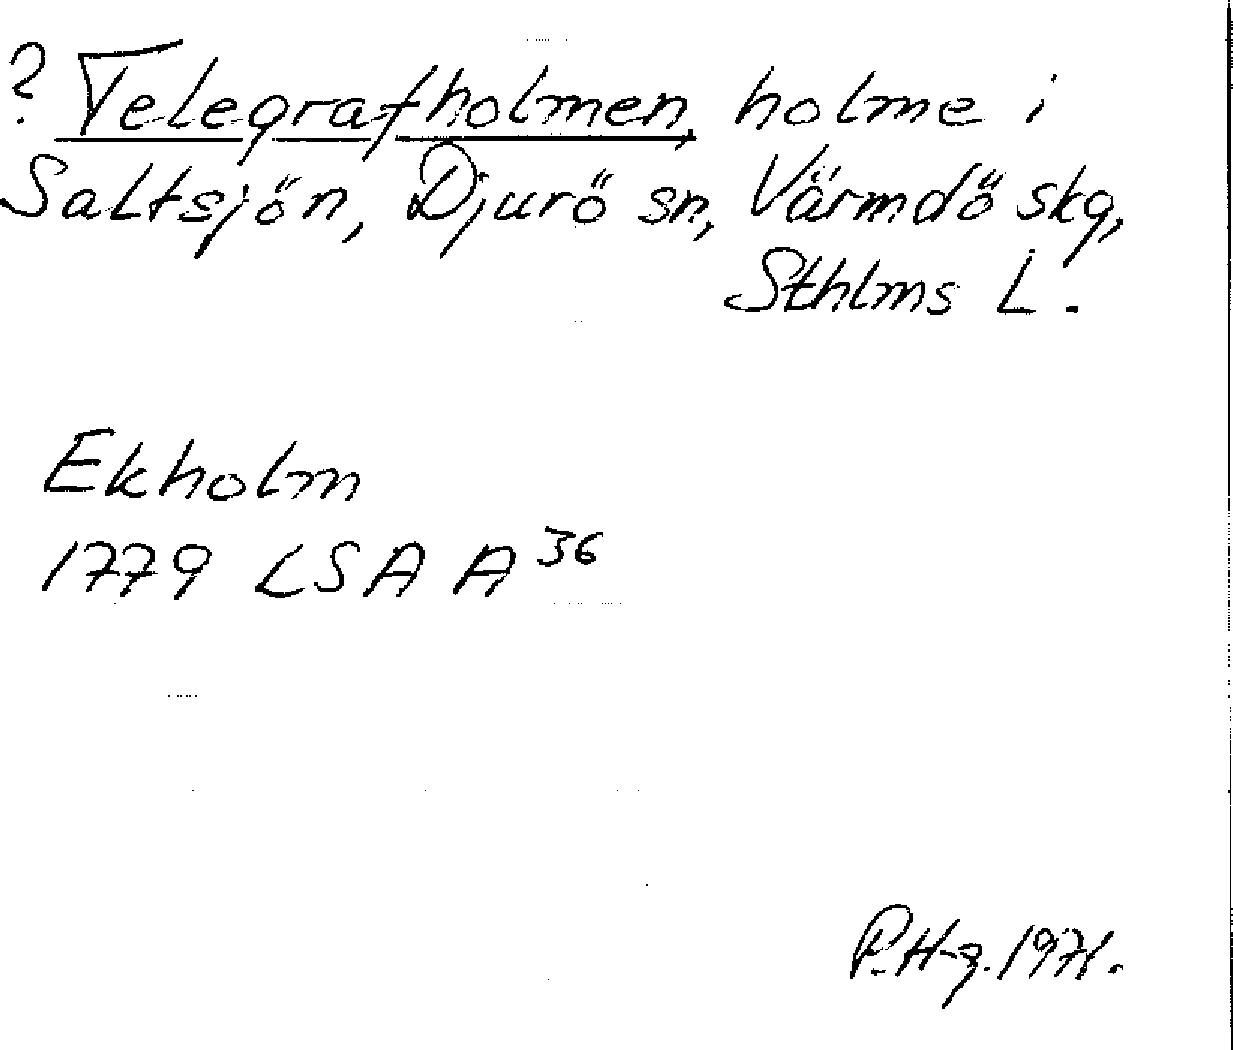 ? Telegrafholmen, holme i
Saltsjön, Djurö sn, Värmdö skg,
Sthlms L.
Ekholm
1779 LSA A 36
P. H-g. 1971.